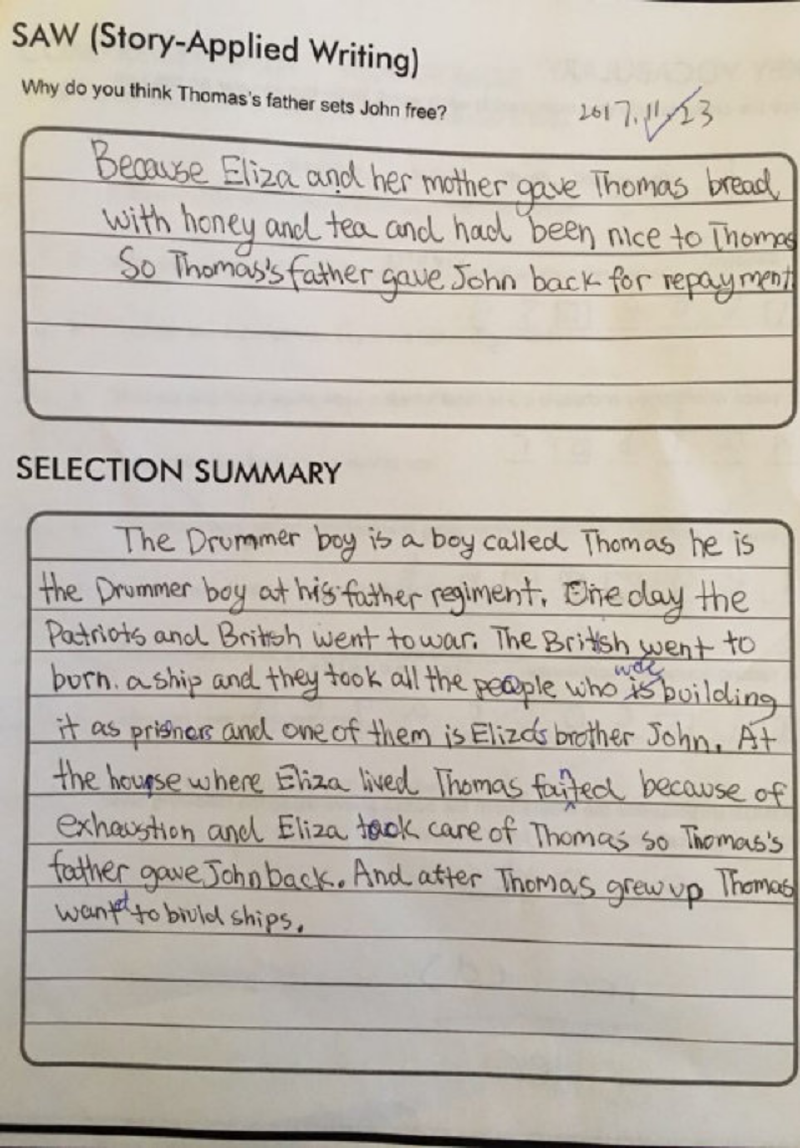 SAW (Story-Applied Writing)
Why do you think Thomas's father sets John free?
2017.11.23
Because Eliza and her mother gave Thomas bread
with honey and tea and had been nice to Thomas
So Thomas's father gave John back for repayment
SELECTION SUMMARY
The Drummer boy is a boy called Thomas he is
the Drummer boy at his father regiment. One day the
Patriots and British went to war. The British went to
burn. a ship and they took all the people who is building
it as prisners and one of them is Eliza's brother John. At
the hourse where Eliza lived Thomas fainted because of
exhaustion and Eliza took care of Thomas so Thomas's
father gave John back. And after Thomas grew up Thomas
wanted to biuld ships.